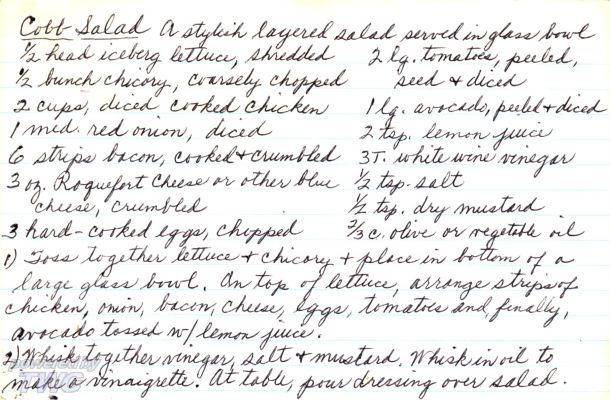 Cobb Salad A stylish layered salad served in glass bowl
1/2 head iceberg lettuce, shredded
1/2 bunch chicory, coarsely chopped
2 cups, diced cooked chicken
1 med. red onion, diced
6 strips bacon, cooked + crumbled
3 oz. Roquefort cheese or other blue
cheese, crumbled
3 hard-cooked eggs, chopped
2 lg. tomatoes, peeled,
seed + diced
1 lg. avocado, peeled + diced
2 tsp. lemon juice
3 T. white wine vinegar
1/2 tsp. salt
1/2 tsp. dry mustard
2/3 c. olive or vegetable oil
1) Toss together lettuce + chicory + place in bottom of a
large glass bowl. On top of lettuce, arrange strips of
chicken, onion, bacon, cheese, eggs, tomatoes and, finally,
avocado tossed w/ lemon juice.
2) Whisk together vinegar, salt + mustard. Whisk in oil to
make a vinaigrette. At table, pour dressing over salad.
powered by
TWC